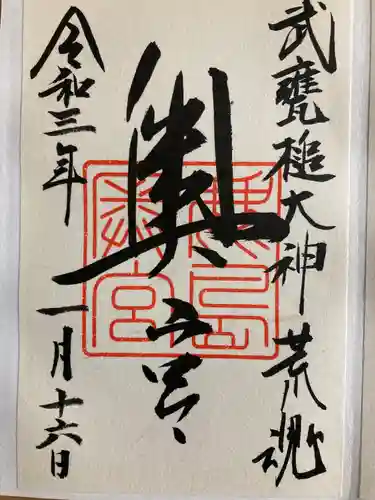 武甕槌大神荒魂
奥宮
鹿島
奥宮
令和三年一月十六日